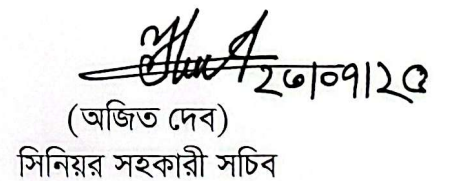 ২৩|০৭|২৫
(অজিত দেব)
সিনিয়র সহকারী সচিব